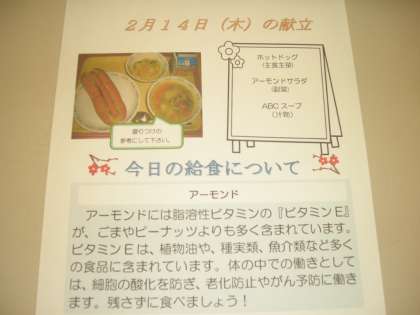 2月14日（木）の献立
ホットドッグ
(主食主菜)
アーモンドサラダ
(副菜)
ABCスープ
(汁物)
盛りつけの
参考にして下さい。
今日の給食について
アーモンド
アーモンドには脂溶性ビタミンの『ビタミンE』
が、ごまやピーナッツよりも多く含まれています。
ビタミンEは、植物油や、種実類、魚介類など多く
の食品に含まれています。体の中での働きとして
は、細胞の酸化を防ぎ、老化防止やがん予防に働き
ます。残さずに食べましょう！